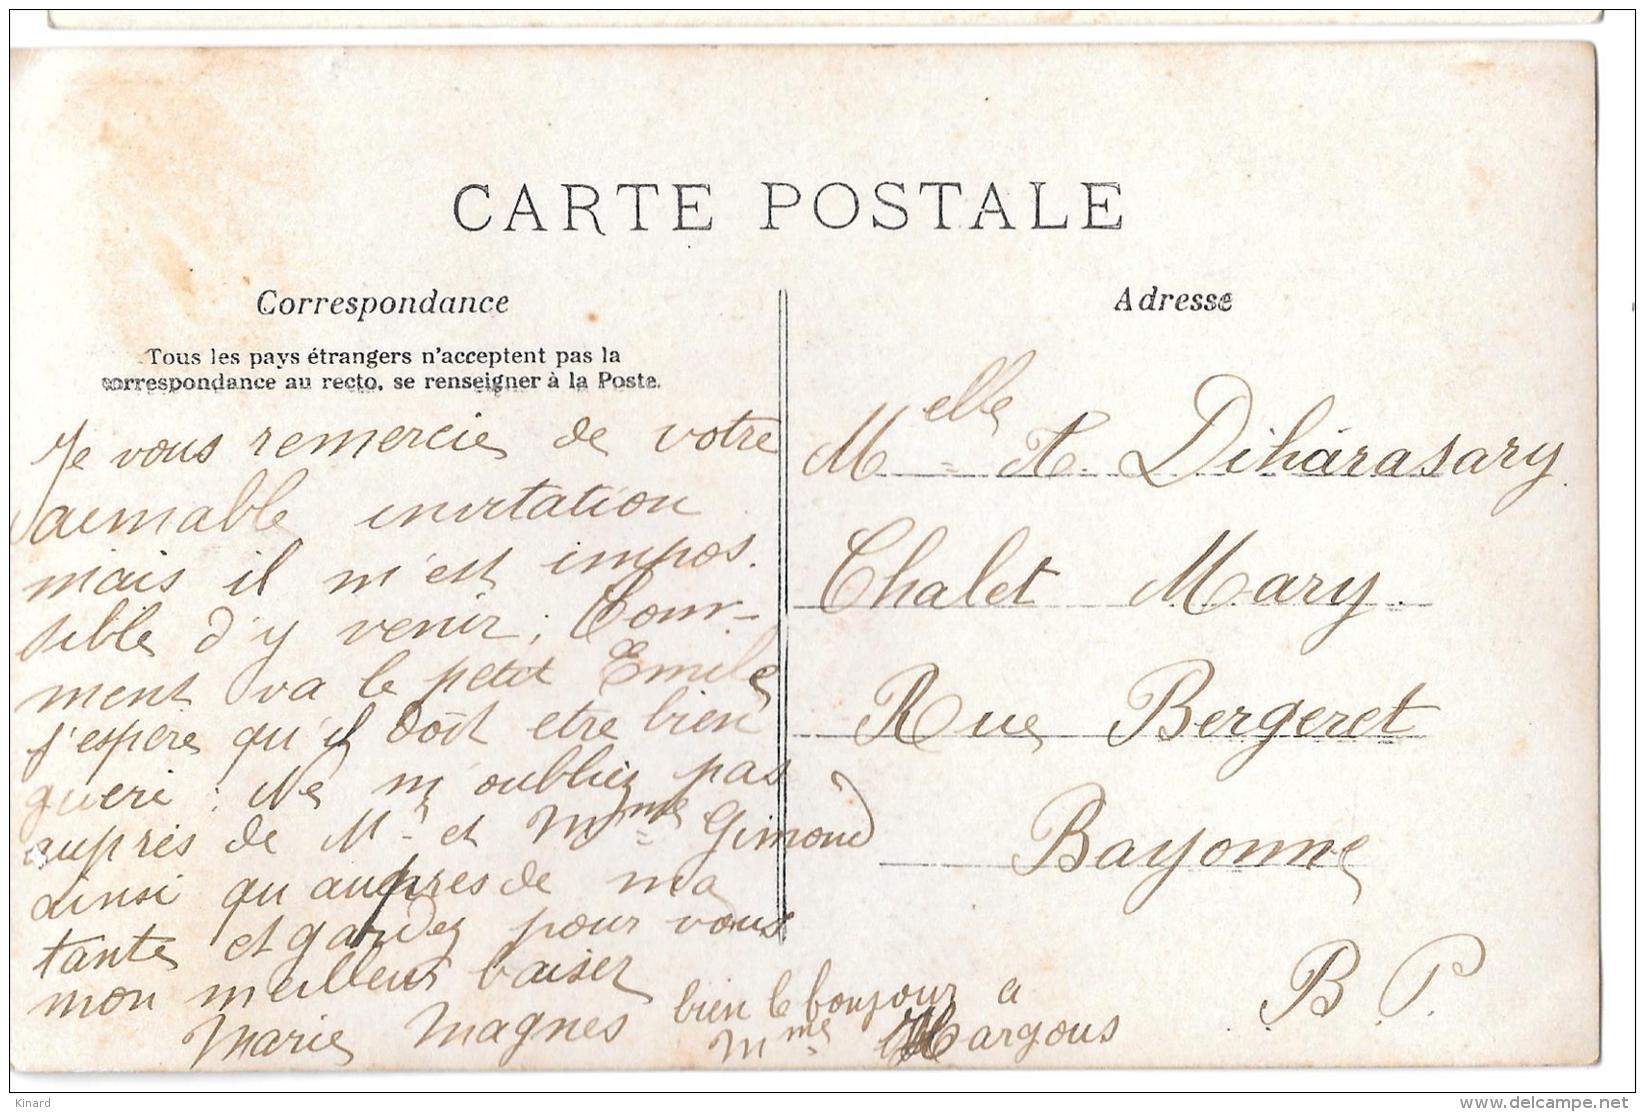 CARTE POSTALE
Correspondance
Tous les pays étrangers n'acceptent pas la
correspondance au recto, se renseigner à la Poste.
Je vous remercie de votre
aimable invitation
mais il m'est impos.
sible d'y venir; Com-
ment va le petit Emile
j'espère qu'il doit etre bien
gueri : Ne m'oubliez pas
auprès de Mr et Mme Gimond
ainsi qu'auprès de ma
tante et gardez pour vous
mon meilleur baiser
Marie Magnes
bien le bonjour a
Mme Hargous
Adresse
Melle A. Diharasary
Chalet Mary.
Rue Bergeret
Bayonne
B. P.
Kinard
www.delcampe.net